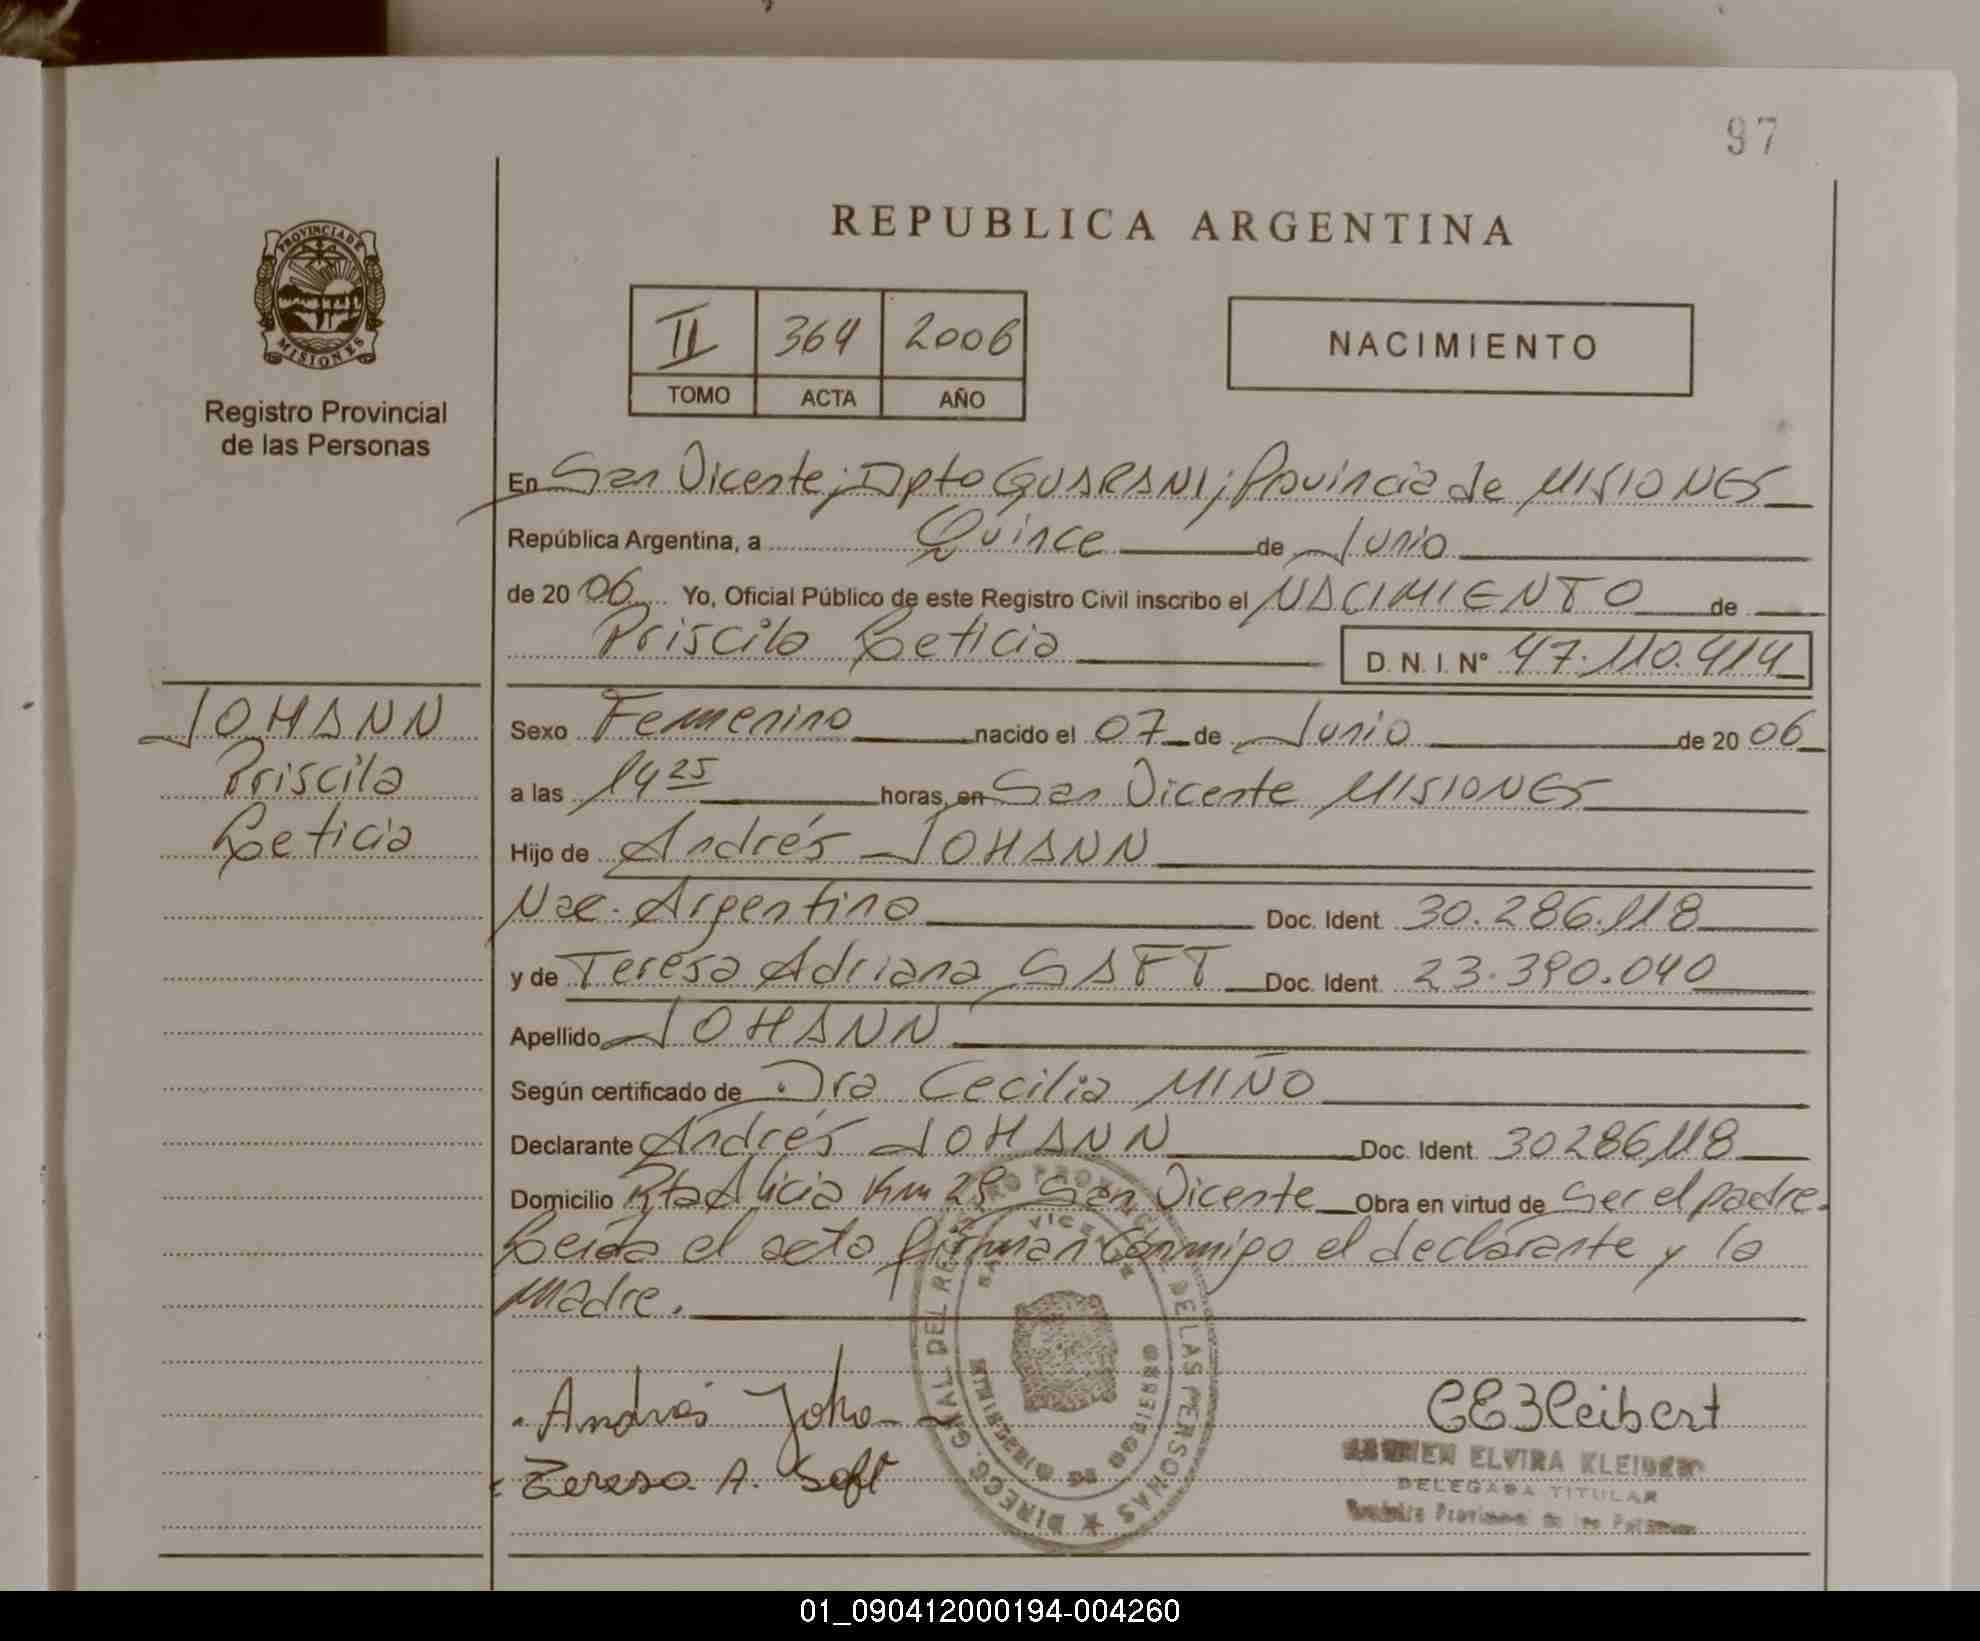 97
REPUBLICA ARGENTINA
PROVINCIA DE
MISIONES
Registro Provincial
de las Personas
II 364 2006
TOMO ACTA AÑO
NACIMIENTO
En San Vicente; Dpto GUARANI; Provincia de MISIONES
República Argentina, a Quince de Junio
de 20 06 Yo, Oficial Público de este Registro Civil inscribo el NACIMIENTO de
Priscila Leticia D.N.I. N° 47.110.414
JOHANN
Priscila
Leticia
Sexo Femenino nacido el 07 de Junio de 20 06
a las 14 25 horas, en San Vicente MISIONES
Hijo de Andrés JOHANN
Nac. Argentina Doc. Ident. 30.286.118
y de Teresa Adriana SAFT Doc. Ident. 23.390.040
Apellido JOHANN
Según certificado de Dra Cecilia MIÑO
Declarante Andrés JOHANN Doc. Ident. 30286118
Domicilio Rta Alicia Km 29 San Vicente Obra en virtud de Ser el padre.
Leida el acta firman conmigo el declarante y la
madre.
DIRECC. GRAL DEL REGISTRO PROVINCIAL DE LAS PERSONAS
SAN VICENTE
MINISTERIO DE GOBIERNO
Andrés Joha
Teresa A. Saft
CEKleibert
ELVIRA
DELEGADA TITULAR
Provincial de las Personas
01_090412000194-004260